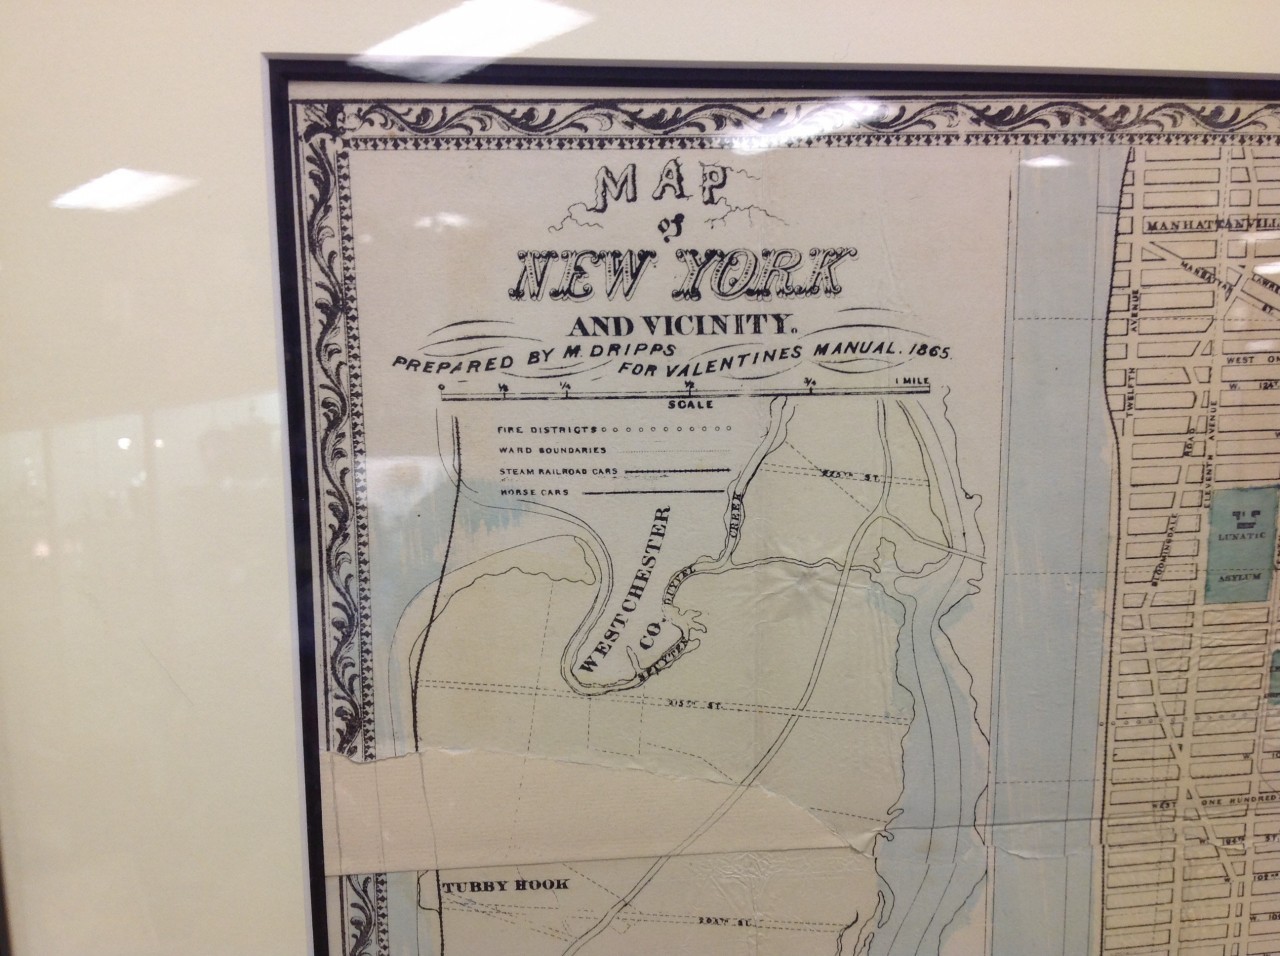 MAP
of
NEW YORK
AND VICINITY.
PREPARED BY M. DRIPPS
FOR VALENTINES MANUAL. 1865.
0 1/8 1/4 1/2 3/4 1 MILE
SCALE
FIRE DISTRICTS
WARD BOUNDARIES
STEAM RAILROAD CARS
HORSE CARS
WESTCHESTER
CO.
SPUYTEN
DUYVEL
CREEK
215TH ST.
TUBBY HOOK
MANHATTANVILL
MANHATTAN
LAWRE
ST.
TWELFTH
AVENUE
WEST ON
W. 124T
ELEVENTH AVENUE
BLOOMINGDALE
ROAD
LUNATIC
ASYLUM
WEST ONE HUNDRED
ST.
W